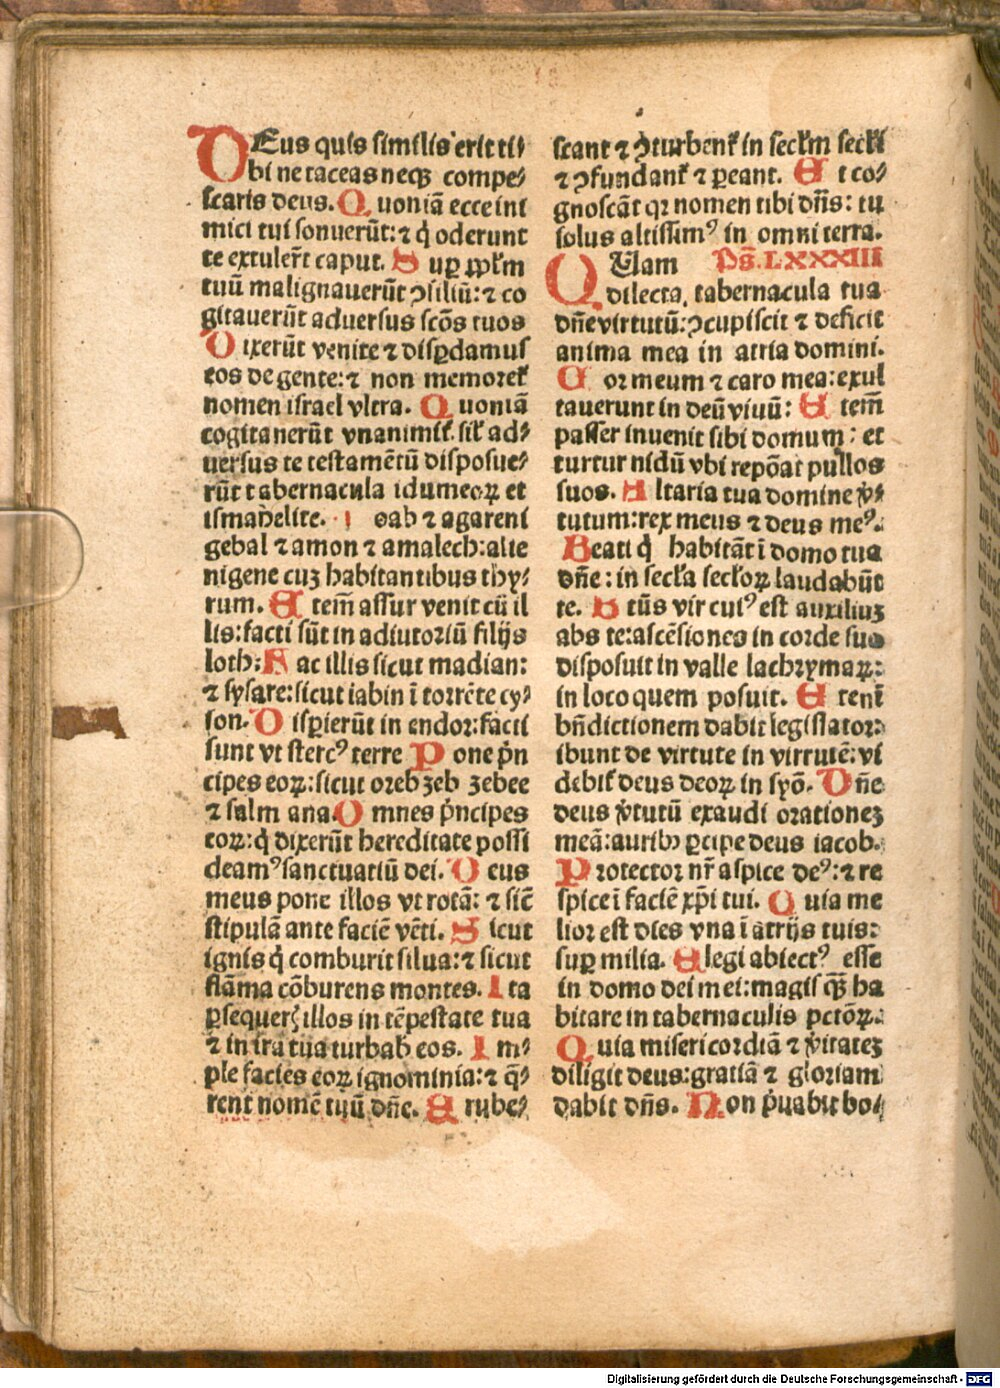 DEus quis similis erit ti⸗
bi ne taceas neqꝫ compe⸗
scaris deus. Quoniā ecce ini
mici tui sonuerūt: ⁊ q̇ oderunt
te extulerūt caput. Sup̲ pp̄lm
tuū malignauerūt ꝯsiliū: ⁊ co
gitauerūt aduersus sc̄os tuos
Dixerūt venite ⁊ disp̲damus
eos de gente: ⁊ non memoret᷑
nomen israel vltra. Quoniā
cogitauerūt vnanimit᷑. sil᷑ ad⸗
uersus te testamētū disposue⸗
rūt tabernacula idumeoꝝ et
ismahelite. Moab ⁊ agareni
gebal ⁊ amon ⁊ amalech: alie
nigene cuꝫ habitantibus thy⸗
rum. Etem̄ assur venit cū il
lis: facti sūt in adiutoriū filijs
loth: Fac illis sicut madian:
⁊ sysare: sicut iabin ī torrēte cy⸗
son. Disp̲ierūt in endor: facti
sunt vt stercꝰ terre Pone pͥn
cipes eoꝝ: sicut oreb zeb zebee
⁊ salmana Omnes pͥncipes
eoꝝ: q̇ dixerūt hereditate possi
deamꝰ sanctuariū dei. Deus
meus pone illos vt rotā: ⁊ sic̄
stipulā ante faciē vēti. Sicut
ignis q̇ comburit silua: ⁊ sicut
flāma cōburens montes. Ita
ꝑsequerꝭ illos in tēpestate tua
⁊ in ira tua turbab̄ eos. Im⸗
ple facies eoꝝ ignominia: ⁊ q̄⸗
rent nomē tuū dn̄e. Erube⸗
scant ⁊ ꝯturbent᷑ in secl᷑m secl᷑i
⁊ ꝯfundant᷑ ⁊ ꝑeant. Et co⸗
gnoscāt qꝛ nomen tibi dn̄s: tu
solus altissimꝰ in omni terra.
QUam Ps̄. LXXXIII
dilecta tabernacula tua
dn̄e virtutū: ꝯcupiscit ⁊ deficit
anima mea in atria domini.
Cor meum ⁊ caro mea: exul
tauerunt in deū viuū: Etem̄
passer inuenit sibi domum: et
turtur nidū vbi repōat pullos
suos. Altaria tua domine v̓⸗
tutum: rex meus ⁊ deus meꝰ.
Beati q̇ habitāt ī domo tua
dn̄e: in secl᷑a secl᷑oꝝ laudabūt
te. Btūs vir cuiꝰ est auxiliuꝫ
abs te: ascēsiones in corde suo
disposuit in valle lachrymaꝝ:
in loco quem posuit. Etenī
bn̄dictionem dabit legislator:
ibunt de virtute in virtutē: vi
debit᷑ deus deoꝝ in syō. Dn̄e
deus v̓tutū exaudi orationeꝫ
meā: auribꝰ ꝑcipe deus iacob.
Protector nr̄ aspice deꝰ: ⁊ re
spice ī faciē xp̄i tui. Quia me
lior est dies vna ī atrijs tuis:
sup̲ milia. Elegi abiectꝰ esse
in domo dei mei: magis qꝫ̄ ha
bitare in tabernaculis pctōꝝ.
Quia misericordiā ⁊ v̓itateꝫ
diligit deus: gratiā ⁊ gloriam
dabit dn̄s. Non pͥuabit bo⸗
Digitalisierung gefördert durch die Deutsche Forschungsgemeinschaft - DFG